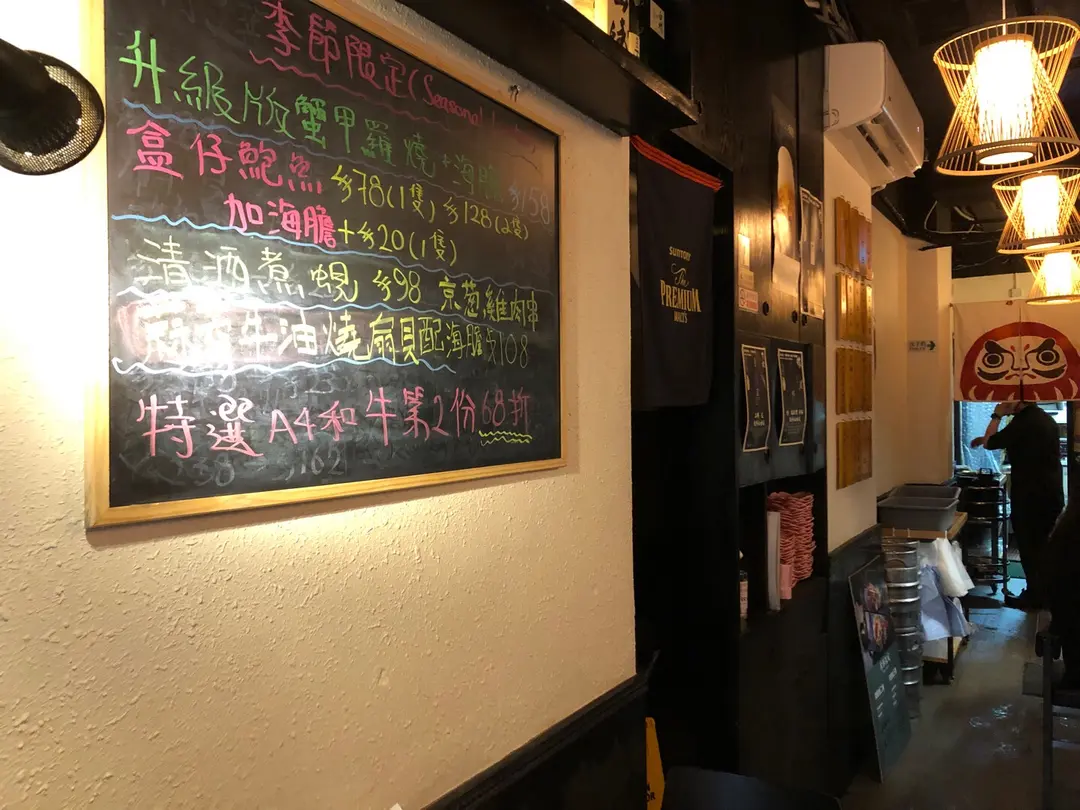 季節限定(Seasonal
升級版蟹甲羅燒+海膽$158
盒仔鮑魚$78(1隻)$128(2隻)
加海膽+$20(1隻)
清酒煮蜆$98 京葱雞肉串
牛油燒扇貝配海膽$108
特選A4和牛第2份68折
SUNTORY
The
PREMIUM
MALT'S